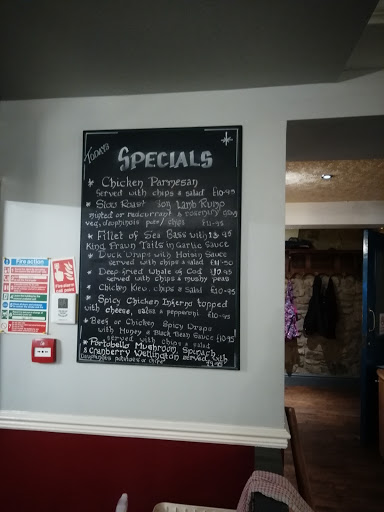 TODAYS
SPECIALS
* Chicken Parmesan
Served with chips & salad £10.95
* Slow Roast Lamb Rump
minted or redcurrant & rosemary gravy
veg, dauphinois pots/ chips
* Fillet of Sea Bass with
King Prawn Tails in Garlic Sauce
* Duck Wraps with Hoisin Sauce
served with chips & salad
* Deep fried Whale of Cod
served with chips & mushy peas
* Chicken Kiev, chips & salad £10.95
* Spicy Chicken Inferno topped
with cheese, salsa & pepperoni £10.95
* Beef or Chicken Spicy Wraps
with Honey & Black Bean Sauce £10.95
served with chips & salad
* Portobello Mushroom, Spinach
& Cranberry Wellington served with
Dauphinois potatoes or chips
Fire action